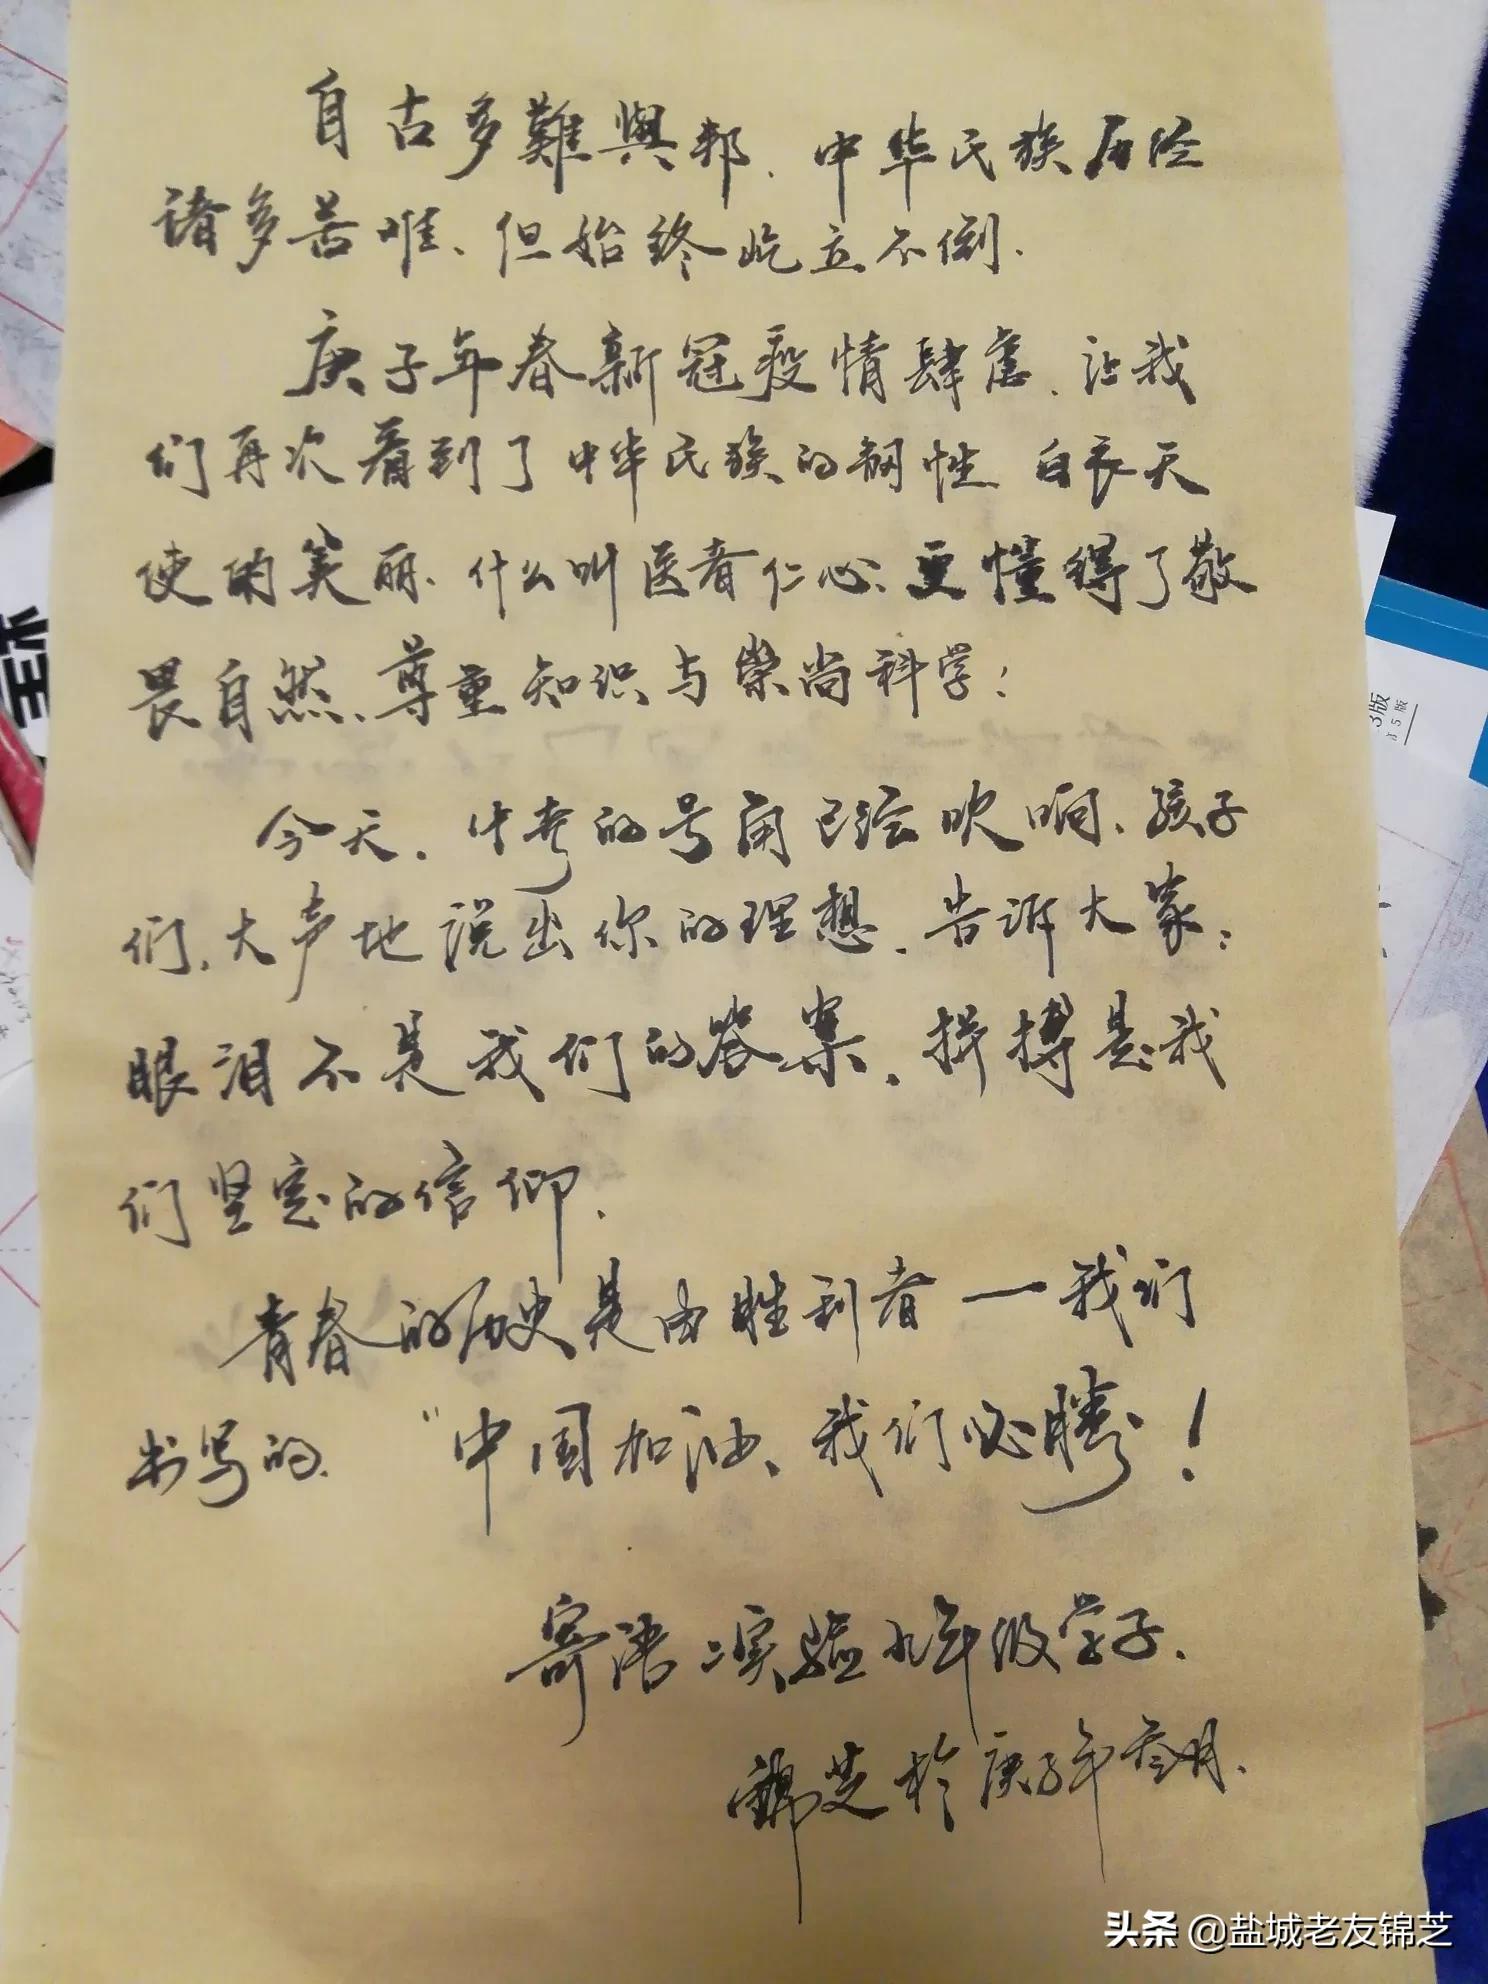 自古多難興邦、中华民族历经
诸多苦难、但始终屹立不倒.
庚子年春新冠疫情肆虐、让我
们再次看到了中华民族的韧性、白衣天
使的美丽、什么叫医者仁心、更懂得了敬
畏自然、尊重知识与崇尚科学！
今天、中考的号角已经吹响、孩子
们、大声地说出你的理想、告诉大家：
眼泪不是我们的答案、拼搏是我
们坚定的信仰.
青春的历史是由胜利者一我们
书写的、“中国加油、我们必勝！
寄语二实验九年级学子.
锦芝於庚子年叁月.
3版
第5版
头条 @盐城老友锦芝